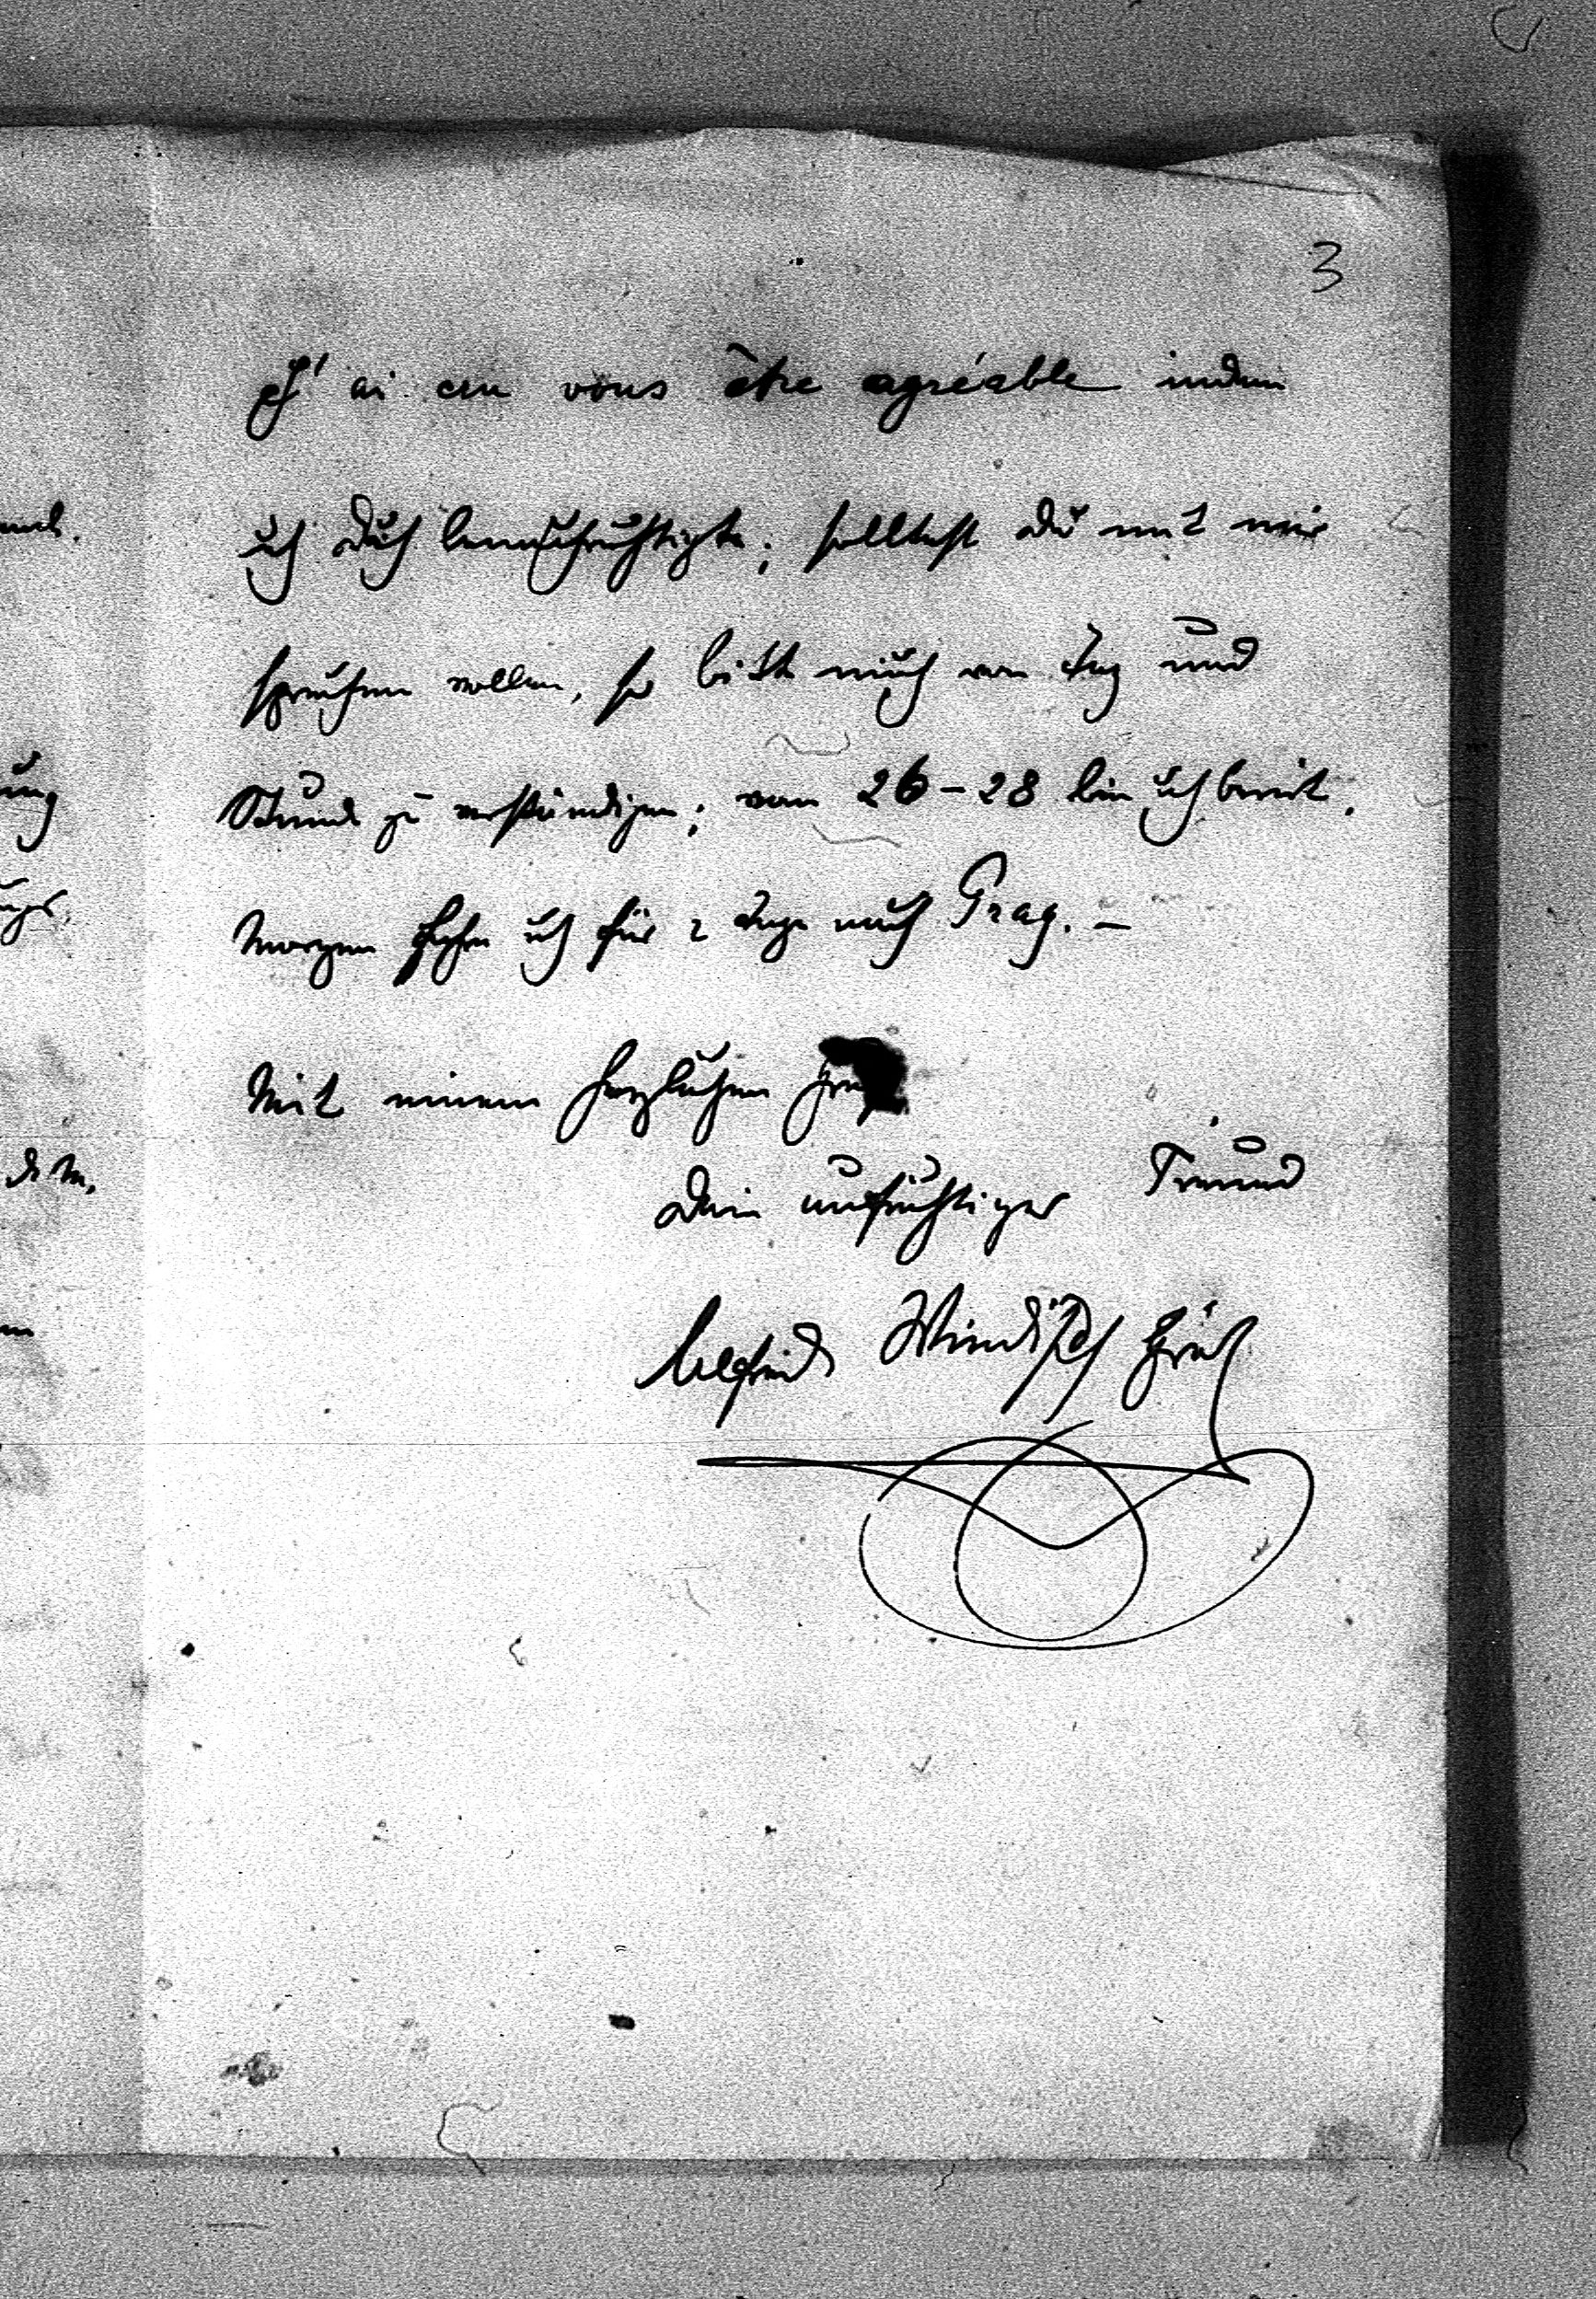 3
J'ai cru vous être agréable indem
ich Dich benachrichtigte; solltest Du mit mir
sprechen wollen, so bitte mich von Tag und
Stunde zu verständigen; vom 26-28 bin ich bereit.
Morgen gehe ich für 2 Tage nach Prag. –
Mit meinem herzlichen
Dein aufrichtiger Freund
Alfred Windisch Grätz